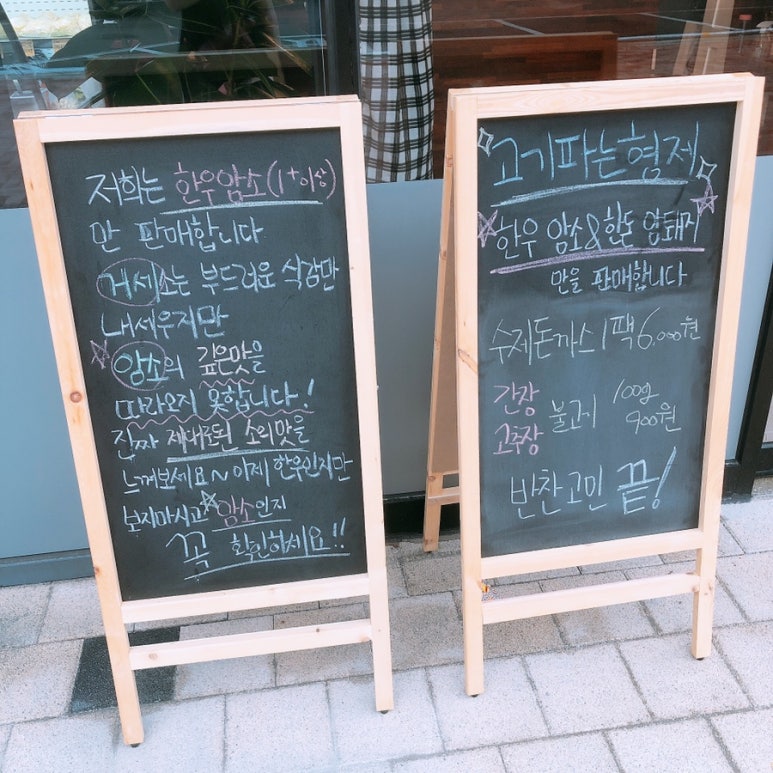 저희는 한우암소(1+이상)
만 판매합니다
거세소는 부드러운 식감만
내세우지만
암소의 깊은맛을
따라오지 못합니다!
진짜 제대로된 소의맛을
느껴보세요~ 이제 한우인지만
보지마시고 암소인지
꼭 확인하세요!!
고기파는형제
한우 암소&한돈 암퇘지
만을 판매합니다
수제돈까스 1팩 6,000원
간장
고추장
불고기 100g
900원
반찬고민 끝!